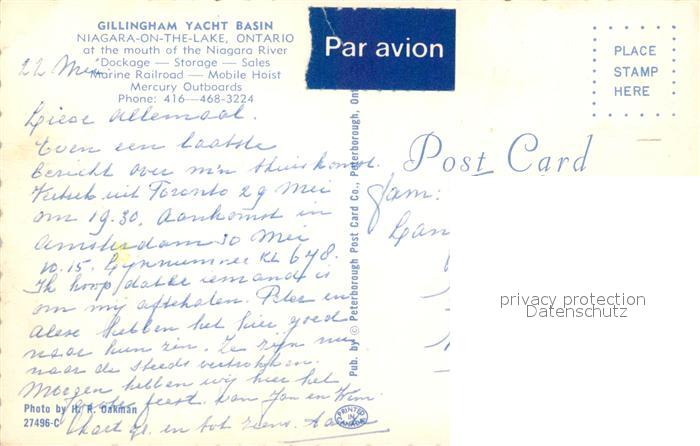 GILLINGHAM YACHT BASIN
NIAGARA-ON-THE-LAKE, ONTARIO
at the mouth of the Niagara River
Dockage — Storage — Sales
Marine Railroad — Mobile Hoist
Mercury Outboards
Phone: 416—468-3224
Par avion
PLACE
STAMP
HERE
Post Card
22 Mei
Lieve allemaal.
Even een laatste
bericht over m'n thuiskomst.
Vertrek uit Toronto 29 Mei
om 19.30. Aankomst in
Amsterdam 30 Mei
10.15. Lynnummer KL 678.
Ik hoop dat er iemand is
om mij aftehalen. Peter en
hebben het hier goed
naar hun zin. Ze zijn nu
naar de steeds vertrokken.
Morgen hebben wij hier het
feest van Jan en Wim.
en tot ziens.
Fam:
Pub. by © Peterborough Post Card Co., Peterborough, Ont
privacy protection
Datenschutz
Photo by H. R. Oakman
27496-C
PRINTED
IN
CANADA